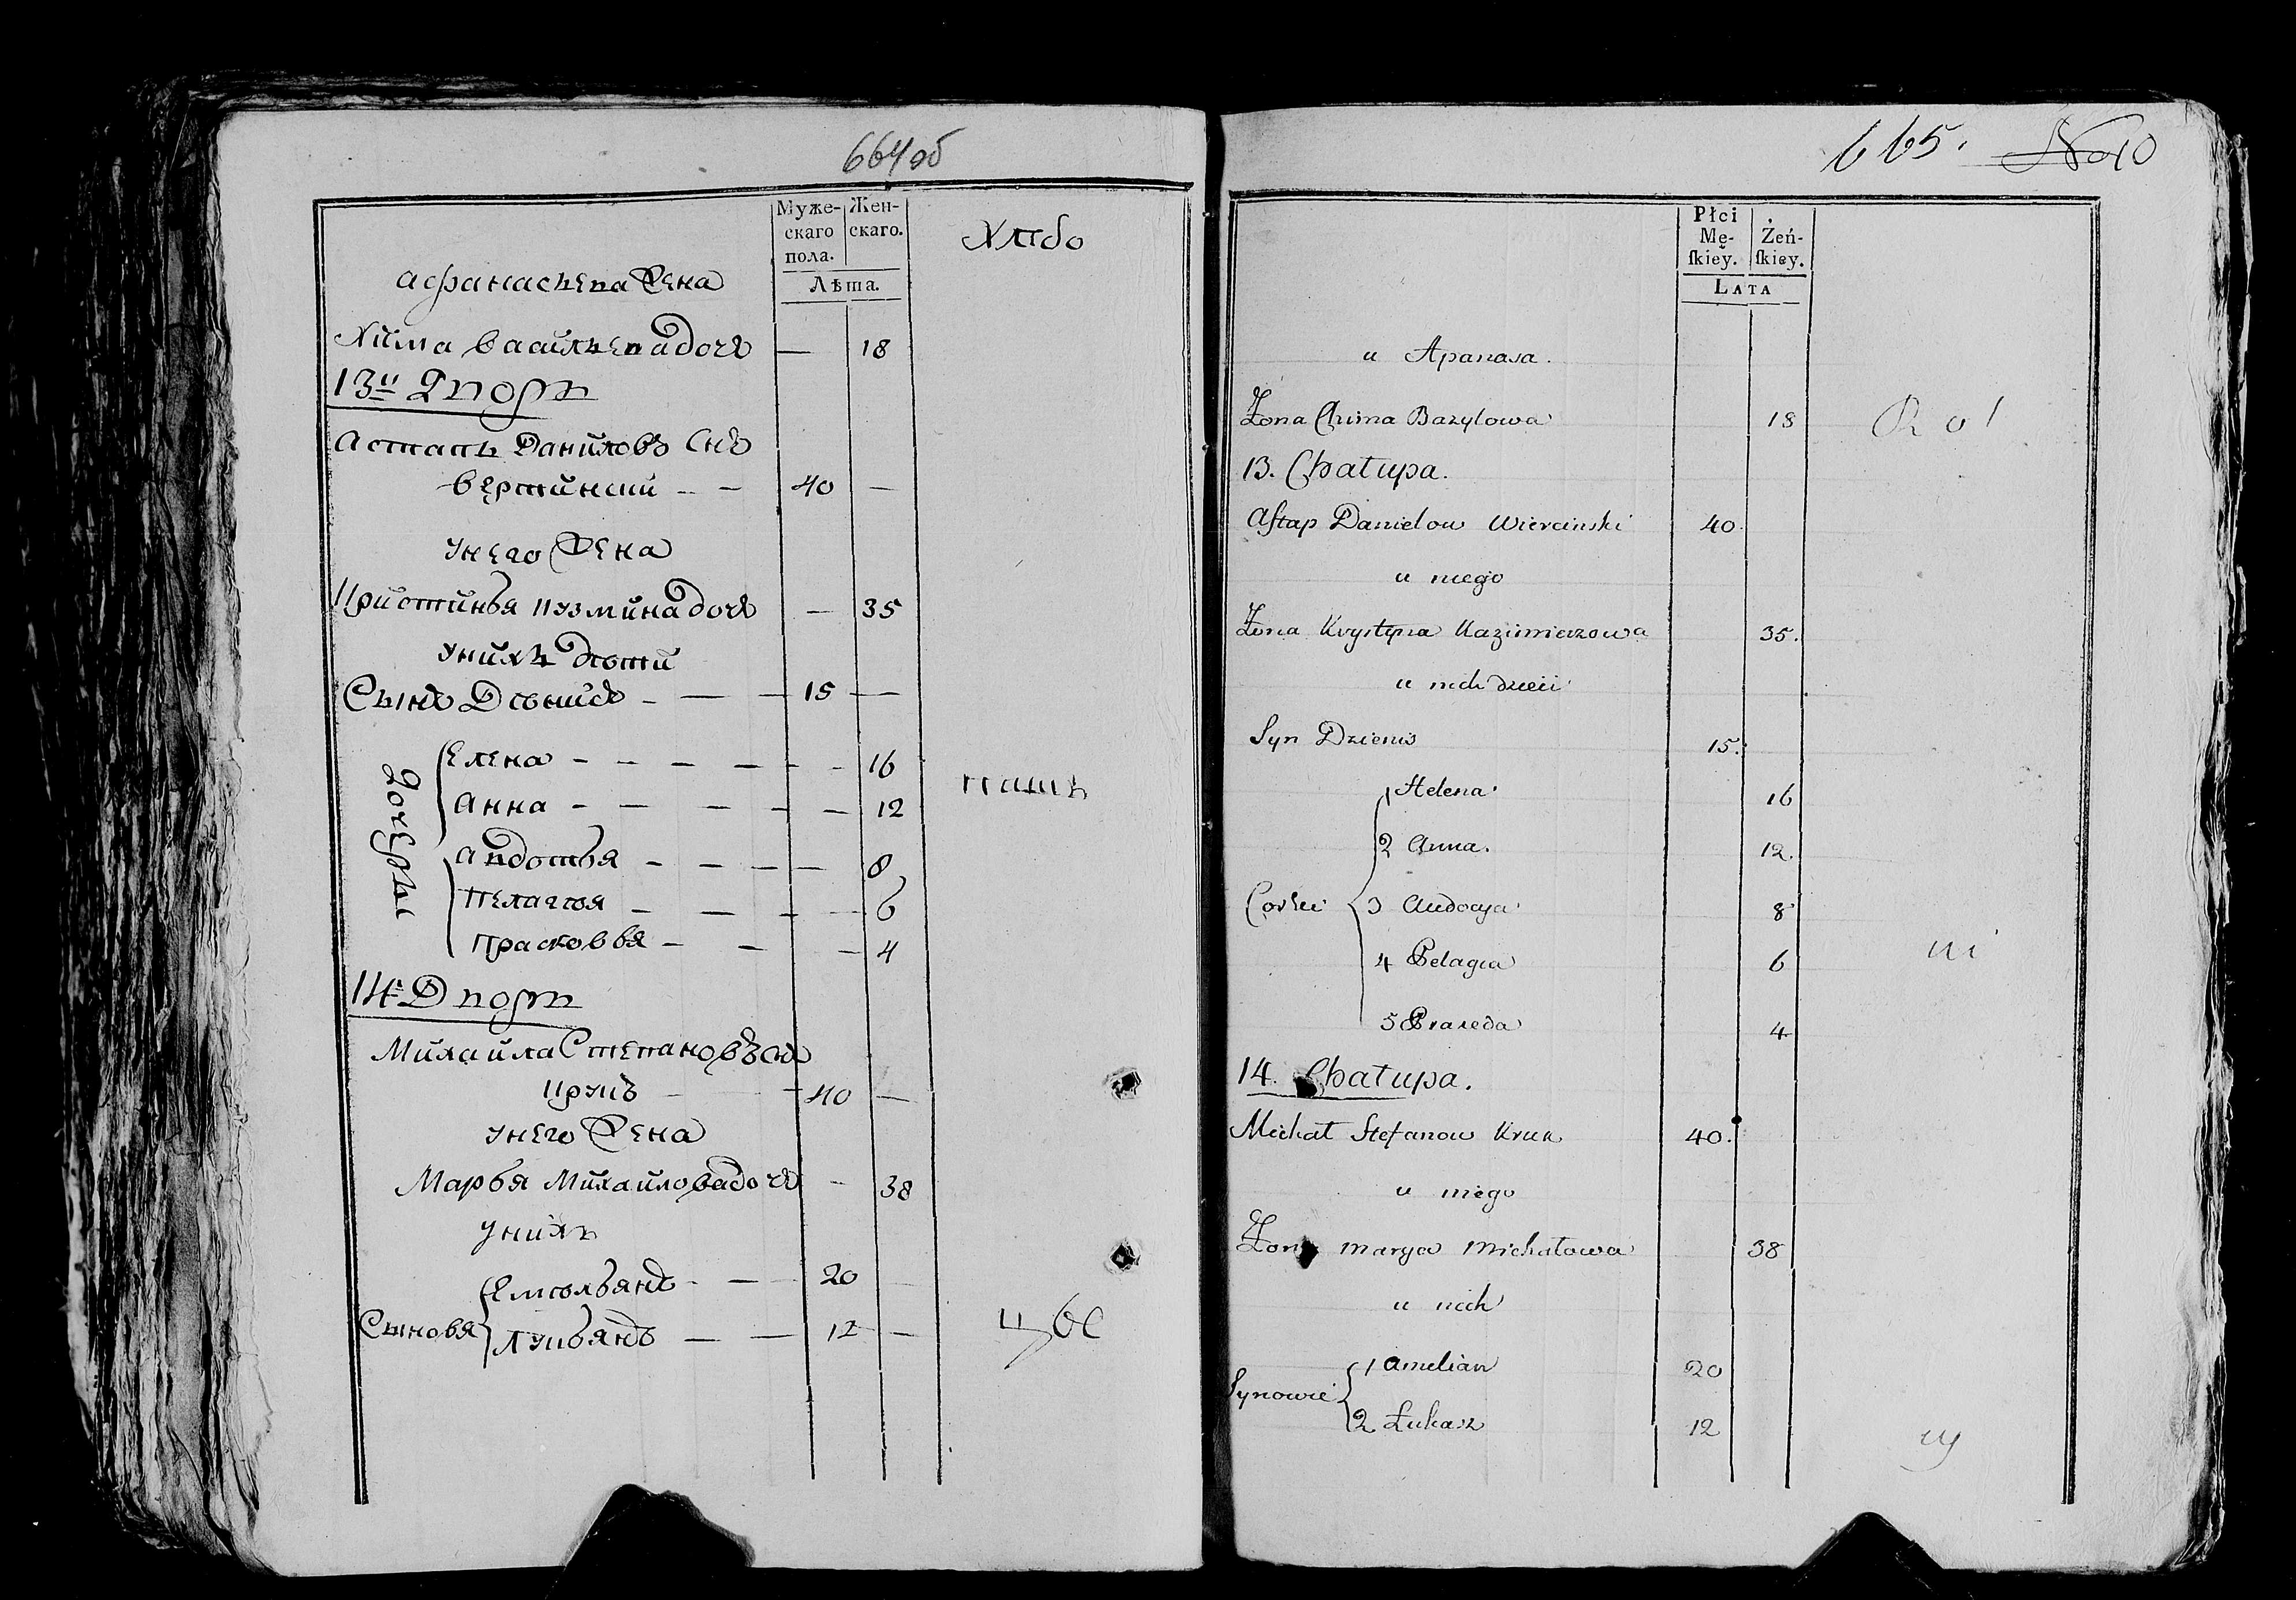 664 об
Муже-
скаго
пола.
Жен-
скаго.
Лѣта.
Хлѣбо
Афанасьева Жена
Хима Васильева дочь — 18
13й Дворъ
Астапъ Даниловъ Снъ
Вертинский — — 40 —
У него Жена
Кристинья Кузмина дочь — 35
У нихъ дѣти
Сынъ Дѣнисъ — — — 15 —
Дочѣры
Елена — — — — — — 16
Анна — — — — — — 12
пашъ
Авдотья — — — — — 8
Пелагѣя — — — — 6
Прасковья — — — 4
14й Дворъ
Михаила Степановъ Снъ
Крукъ — — 40 —
У него Жена
Марья Михайлова дочь — 38
У нихъ
Сыновя
Емѣльянъ — — 20
Лукьянъ — — 12 —
цы
665. No 10
Płci
Mę-
ſkiey.
Żeń-
ſkiey.
LATA
u Apanasa.
Żona Chima Bazylowa 18
Rol
13. Chatupa.
Aſtap Danielow Wiercinski 40.
u niego
Żona Krystyna Kazimierzowa 35.
u nich dzieci
Syn Dzienis 15.
Corki
1 Helena 16
2 Anna. 12.
3 Audocya 8
4 Pelagia 6
ni
5 Praxeda 4
14. Chatupa.
Michał Stefanow Kruk 40.
u niego
Żona Marya Michałowa 38
u nich
Synowie
1 Amelian 20
2 Łukasz 12
cy